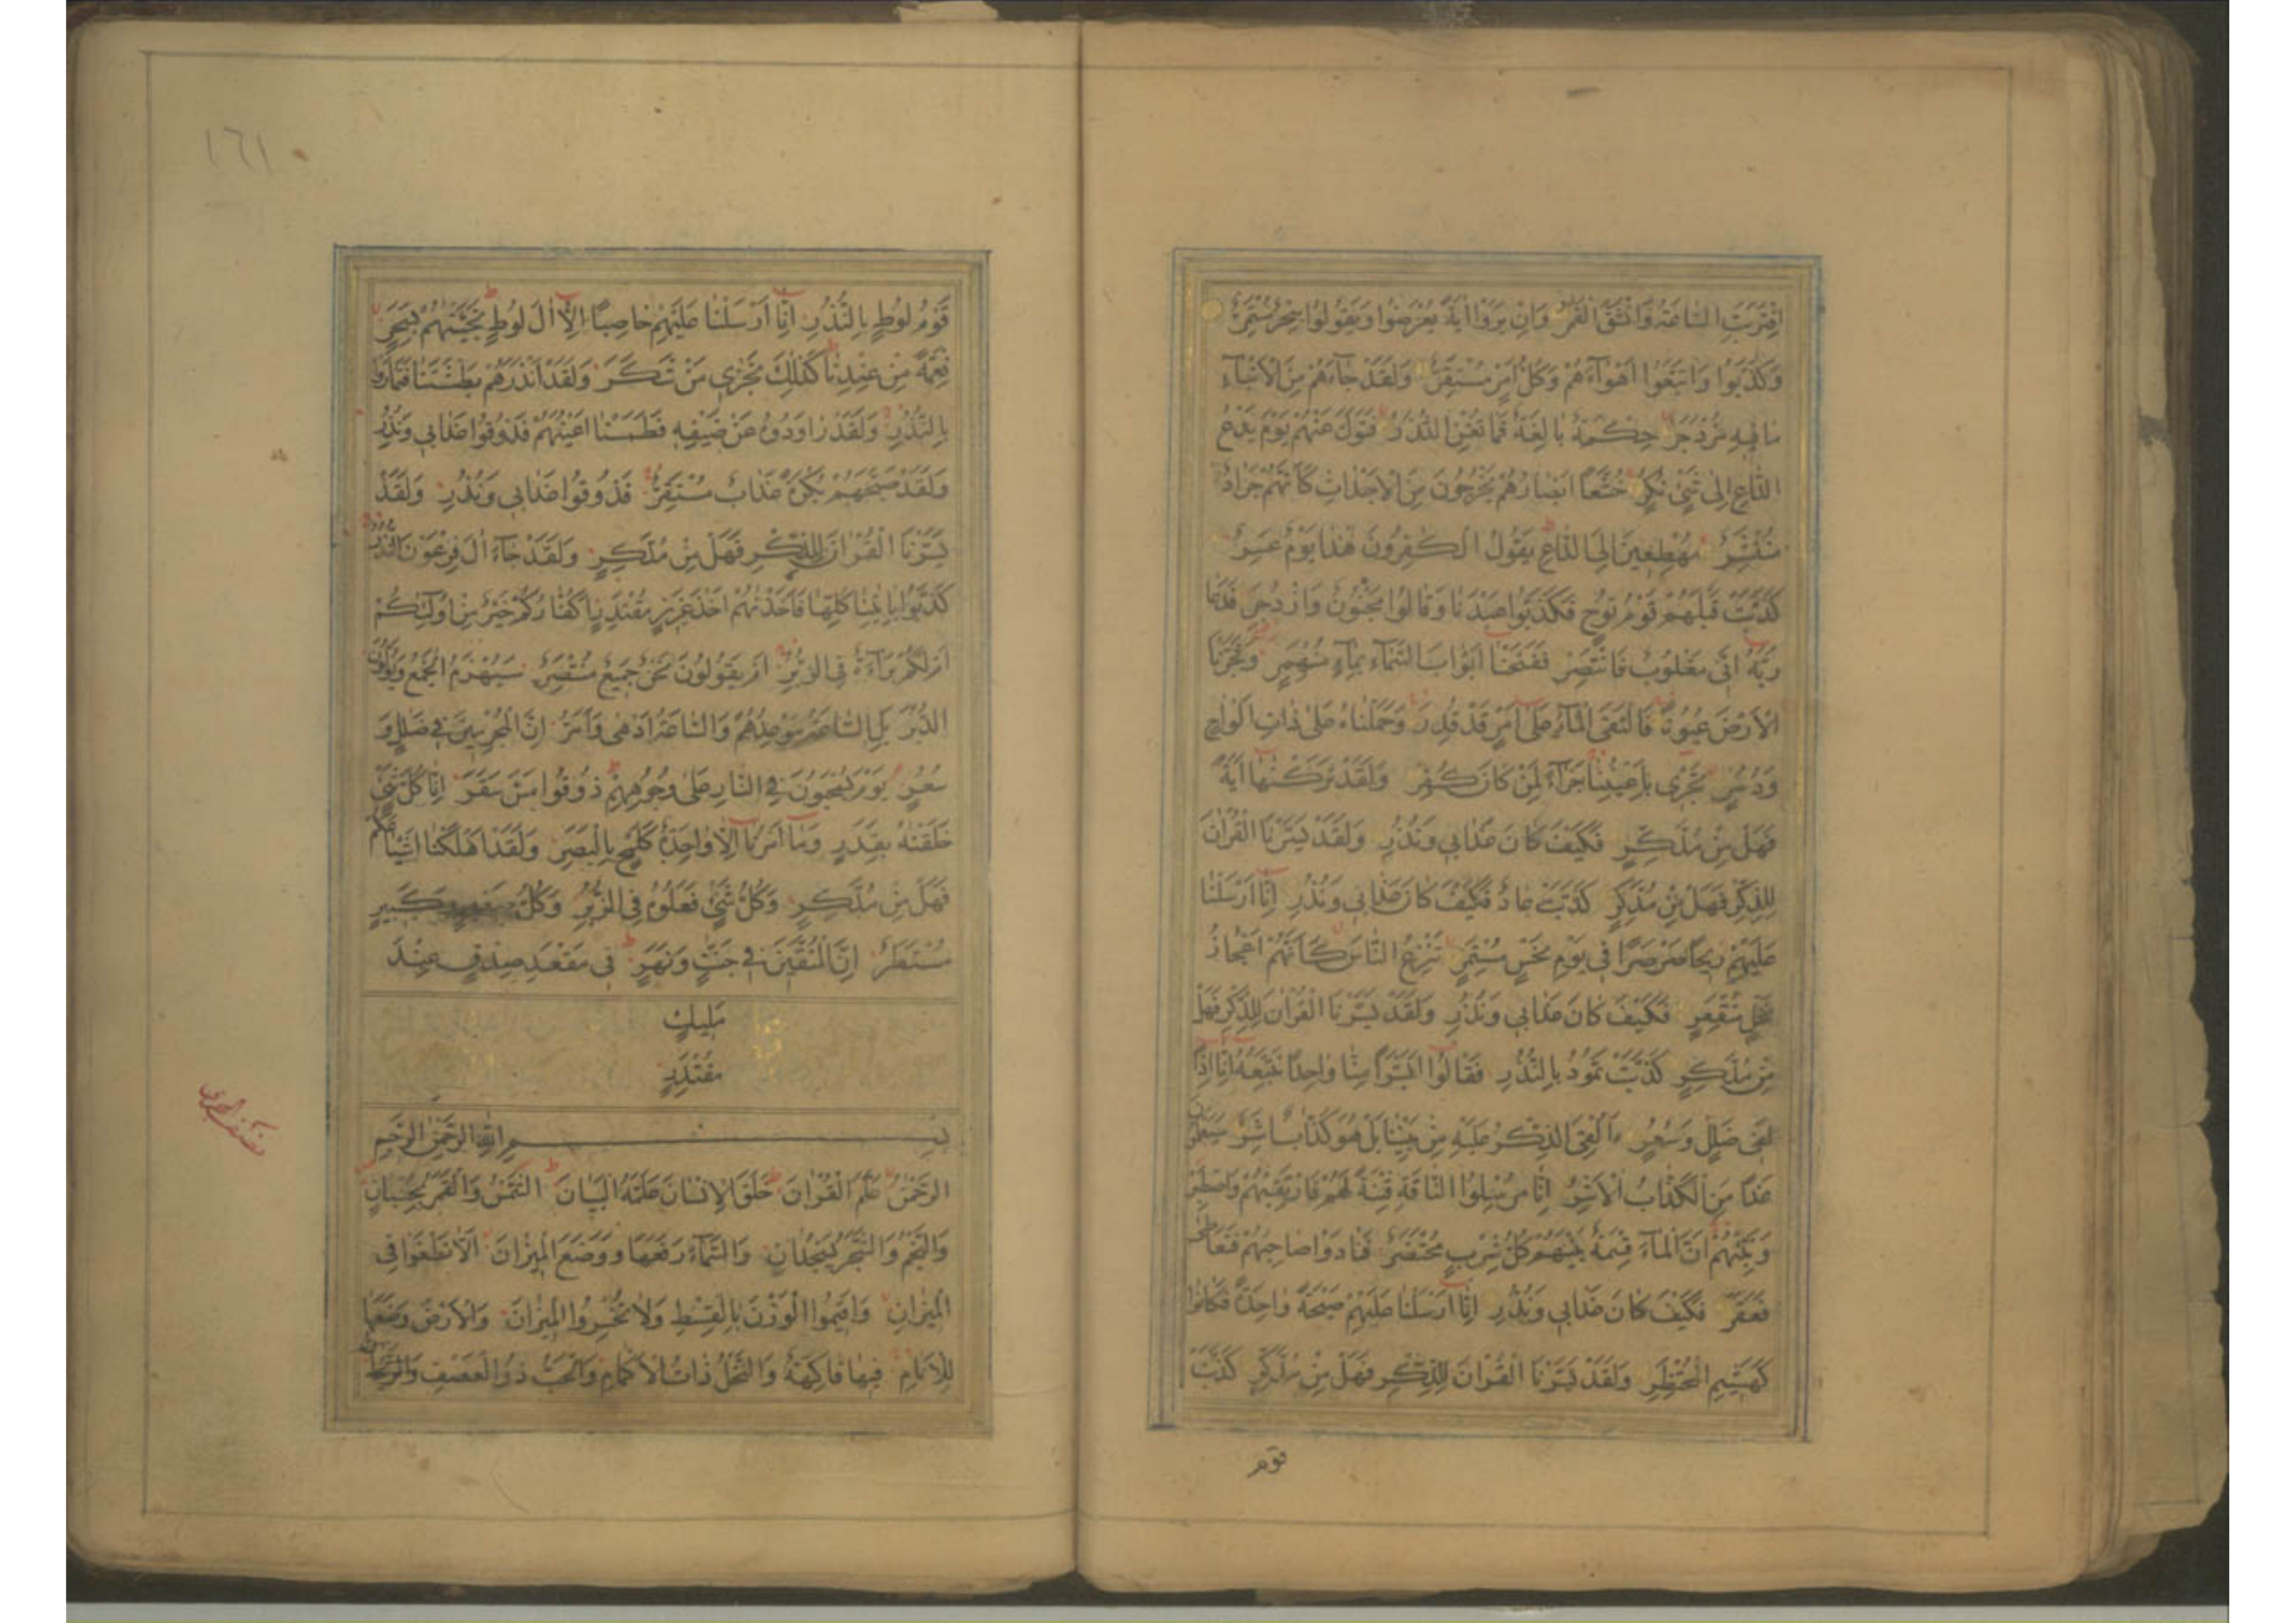 اِقْتَرَبَتِ السَّاعَةُ وَانْشَقَّ الْقَمَرُ وَاِنْ يَرَوْا اٰيَةً يُعْرِضُوا وَيَقُولُوا سِحْرٌ مُسْتَمِرٌّ
وَكَذَّبُوا وَاتَّبَعُوا اَهْوَآءَهُمْ وَكُلُّ اَمْرٍ مُسْتَقِرٌّ وَلَقَدْ جَآءَهُمْ مِنَ الْاَنْبَآءِ
مَا فِيهِ مُزْدَجَرٌ حِكْمَةٌ بَالِغَةٌ فَمَا تُغْنِ النُّذُرُ فَتَوَلَّ عَنْهُمْ يَوْمَ يَدْعُ
الدَّاعِ اِلٰى شَيْءٍ نُكُرٍ خُشَّعًا اَبْصَارُهُمْ يَخْرُجُونَ مِنَ الْاَجْدَاثِ كَاَنَّهُمْ جَرَادٌ
مُنْتَشِرٌ مُهْطِعِينَ اِلَى الدَّاعِ يَقُولُ الْكٰفِرُونَ هٰذَا يَوْمٌ عَسِرٌ
كَذَّبَتْ قَبْلَهُمْ قَوْمُ نُوحٍ فَكَذَّبُوا عَبْدَنَا وَقَالُوا مَجْنُونٌ وَازْدُجِرَ فَدَعَا
رَبَّهُ اَنِّى مَغْلُوبٌ فَانْتَصِرْ فَفَتَحْنَا اَبْوَابَ السَّمَآءِ بِمَآءٍ مُنْهَمِرٍ وَفَجَّرْنَا
الْاَرْضَ عُيُونًا فَالْتَقَى الْمَآءُ عَلٰى اَمْرٍ قَدْ قُدِرَ وَحَمَلْنَاهُ عَلٰى ذَاتِ اَلْوَاحٍ
وَدُسُرٍ تَجْرِى بِاَعْيُنِنَا جَزَآءً لِمَنْ كَانَ كُفِرَ وَلَقَدْ تَرَكْنٰهَا اٰيَةً
فَهَلْ مِنْ مُدَّكِرٍ فَكَيْفَ كَانَ عَذَابِى وَنُذُرِ وَلَقَدْ يَسَّرْنَا الْقُرْاٰنَ
لِلذِّكْرِ فَهَلْ مِنْ مُدَّكِرٍ كَذَّبَتْ عَادٌ فَكَيْفَ كَانَ عَذَابِى وَنُذُرِ اِنَّا اَرْسَلْنَا
عَلَيْهِمْ رِيحًا صَرْصَرًا فِى يَوْمِ نَحْسٍ مُسْتَمِرٍّ تَنْزِعُ النَّاسَ كَاَنَّهُمْ اَعْجَازُ
نَخْلٍ مُنْقَعِرٍ فَكَيْفَ كَانَ عَذَابِى وَنُذُرِ وَلَقَدْ يَسَّرْنَا الْقُرْاٰنَ لِلذِّكْرِ فَهَلْ
مِنْ مُدَّكِرٍ كَذَّبَتْ ثَمُودُ بِالنُّذُرِ فَقَالُوا اَبَشَرًا مِنَّا وَاحِدًا نَتَّبِعُهُ اِنَّا اِذًا
لَفِى ضَلَالٍ وَسُعُرٍ ءَاُلْقِىَ الذِّكْرُ عَلَيْهِ مِنْ بَيْنِنَا بَلْ هُوَ كَذَّابٌ اَشِرٌ سَيَعْلَمُونَ
غَدًا مَنِ الْكَذَّابُ الْاَشِرُ اِنَّا مُرْسِلُوا النَّاقَةِ فِتْنَةً لَهُمْ فَارْتَقِبْهُمْ وَاصْطَبِرْ
وَنَبِّئْهُمْ اَنَّ الْمَآءَ قِسْمَةٌ بَيْنَهُمْ كُلُّ شِرْبٍ مُحْتَضَرٌ فَنَادَوْا صَاحِبَهُمْ فَتَعَاطٰى
فَعَقَرَ فَكَيْفَ كَانَ عَذَابِى وَنُذُرِ اِنَّا اَرْسَلْنَا عَلَيْهِمْ صَيْحَةً وَاحِدَةً فَكَانُوا
كَهَشِيمِ الْمُحْتَظِرِ وَلَقَدْ يَسَّرْنَا الْقُرْاٰنَ لِلذِّكْرِ فَهَلْ مِنْ مُدَّكِرٍ كَذَّبَتْ
قوم
١٦١
قَوْمُ لُوطٍ بِالنُّذُرِ اِنَّا اَرْسَلْنَا عَلَيْهِمْ حَاصِبًا اِلَّا اٰلَ لُوطٍ نَجَّيْنٰهُمْ بِسَحَرٍ
نِعْمَةً مِنْ عِنْدِنَا كَذٰلِكَ نَجْزِى مَنْ شَكَرَ وَلَقَدْ اَنْذَرَهُمْ بَطْشَتَنَا فَتَمَارَوْا
بِالنُّذُرِ وَلَقَدْ رَاوَدُوهُ عَنْ ضَيْفِهِ فَطَمَسْنَا اَعْيُنَهُمْ فَذُوقُوا عَذَابِى وَنُذُرِ
وَلَقَدْ صَبَّحَهُمْ بُكْرَةً عَذَابٌ مُسْتَقِرٌّ فَذُوقُوا عَذَابِى وَنُذُرِ وَلَقَدْ
يَسَّرْنَا الْقُرْاٰنَ لِلذِّكْرِ فَهَلْ مِنْ مُدَّكِرٍ وَلَقَدْ جَآءَ اٰلَ فِرْعَوْنَ النُّذُرُ
كَذَّبُوا بِاٰيَاتِنَا كُلِّهَا فَاَخَذْنٰهُمْ اَخْذَ عَزِيزٍ مُقْتَدِرٍ اَكُفَّارُكُمْ خَيْرٌ مِنْ اُولٰٓئِكُمْ
اَمْ لَكُمْ بَرَآءَةٌ فِى الزُّبُرِ اَمْ يَقُولُونَ نَحْنُ جَمِيعٌ مُنْتَصِرٌ سَيُهْزَمُ الْجَمْعُ وَيُوَلُّونَ
الدُّبُرَ بَلِ السَّاعَةُ مَوْعِدُهُمْ وَالسَّاعَةُ اَدْهٰى وَاَمَرُّ اِنَّ الْمُجْرِمِينَ فِى ضَلَالٍ وَ
سُعُرٍ يَوْمَ يُسْحَبُونَ فِى النَّارِ عَلٰى وُجُوهِهِمْ ذُوقُوا مَسَّ سَقَرَ اِنَّا كُلَّ شَيْءٍ
خَلَقْنٰهُ بِقَدَرٍ وَمَا اَمْرُنَا اِلَّا وَاحِدَةٌ كَلَمْحٍ بِالْبَصَرِ وَلَقَدْ اَهْلَكْنَا اَشْيَاعَكُمْ
فَهَلْ مِنْ مُدَّكِرٍ وَكُلُّ شَيْءٍ فَعَلُوهُ فِى الزُّبُرِ وَكُلُّ صَغِيرٍ وَكَبِيرٍ
مُسْتَطَرٌ اِنَّ الْمُتَّقِينَ فِى جَنَّاتٍ وَنَهَرٍ فِى مَقْعَدِ صِدْقٍ عِنْدَ
مَلِيكٍ
مُقْتَدِرٍ
بِسْمِ اللّٰهِ الرَّحْمٰنِ الرَّحِيمِ
الرَّحْمٰنُ عَلَّمَ الْقُرْاٰنَ خَلَقَ الْاِنْسَانَ عَلَّمَهُ الْبَيَانَ الشَّمْسُ وَالْقَمَرُ بِحُسْبَانٍ
وَالنَّجْمُ وَالشَّجَرُ يَسْجُدَانِ وَالسَّمَآءَ رَفَعَهَا وَوَضَعَ الْمِيزَانَ اَلَّا تَطْغَوْا فِى
الْمِيزَانِ وَاَقِيمُوا الْوَزْنَ بِالْقِسْطِ وَلَا تُخْسِرُوا الْمِيزَانَ وَالْاَرْضَ وَضَعَهَا
لِلْاَنَامِ فِيهَا فَاكِهَةٌ وَالنَّخْلُ ذَاتُ الْاَكْمَامِ وَالْحَبُّ ذُو الْعَصْفِ وَالرَّيْحَانُ